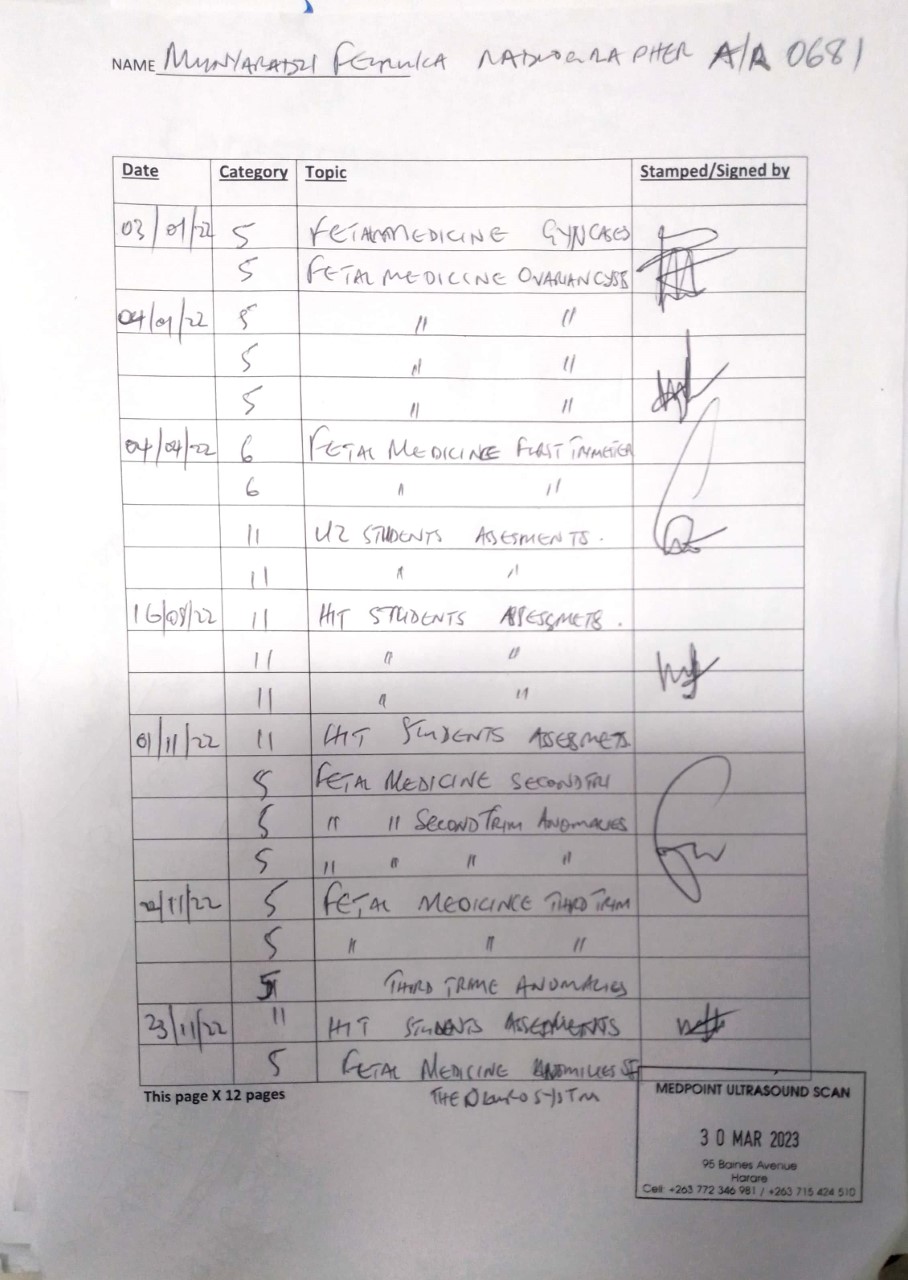 NAME MUNYARADZI RADIOGRAPHER A/A 0681
Date Category Topic Stamped/Signed by
03/01/22 5 FETALMEDICINE GYNCASES
5 FETAL MEDICINE OVARIAN CYSTS
04/01/22 5 " "
5 " "
5 " "
04/04/22 6 FETAL MEDICINE FIRST TRIMETER
6 " "
11 UZ STUDENTS ASSESMENTS.
11 " "
16/08/22 11 HIT STUDENTS ASSESSMETS.
11 " "
11 " "
01/11/22 11 HIT STUDENTS ASSESSMETS
5 FETAL MEDICINE SECONDTRI
5 " " SECONDTRIM ANOMALIES
5 " " " "
/11/22 5 FETAL MEDICINCE THIRDTRIM
5 " " "
5 THIRD TRIME ANOMALIES
23/11/22 11 HIT STUDENTS ASSESSMENTS
5 FETAL MEDICINE ANOMILIES OF
THE SYSTM
This page X 12 pages
MEDPOINT ULTRASOUND SCAN
30 MAR 2023
95 Baines Avenue
Harare
Cell: +263 772 346 981 / +263 715 424 510